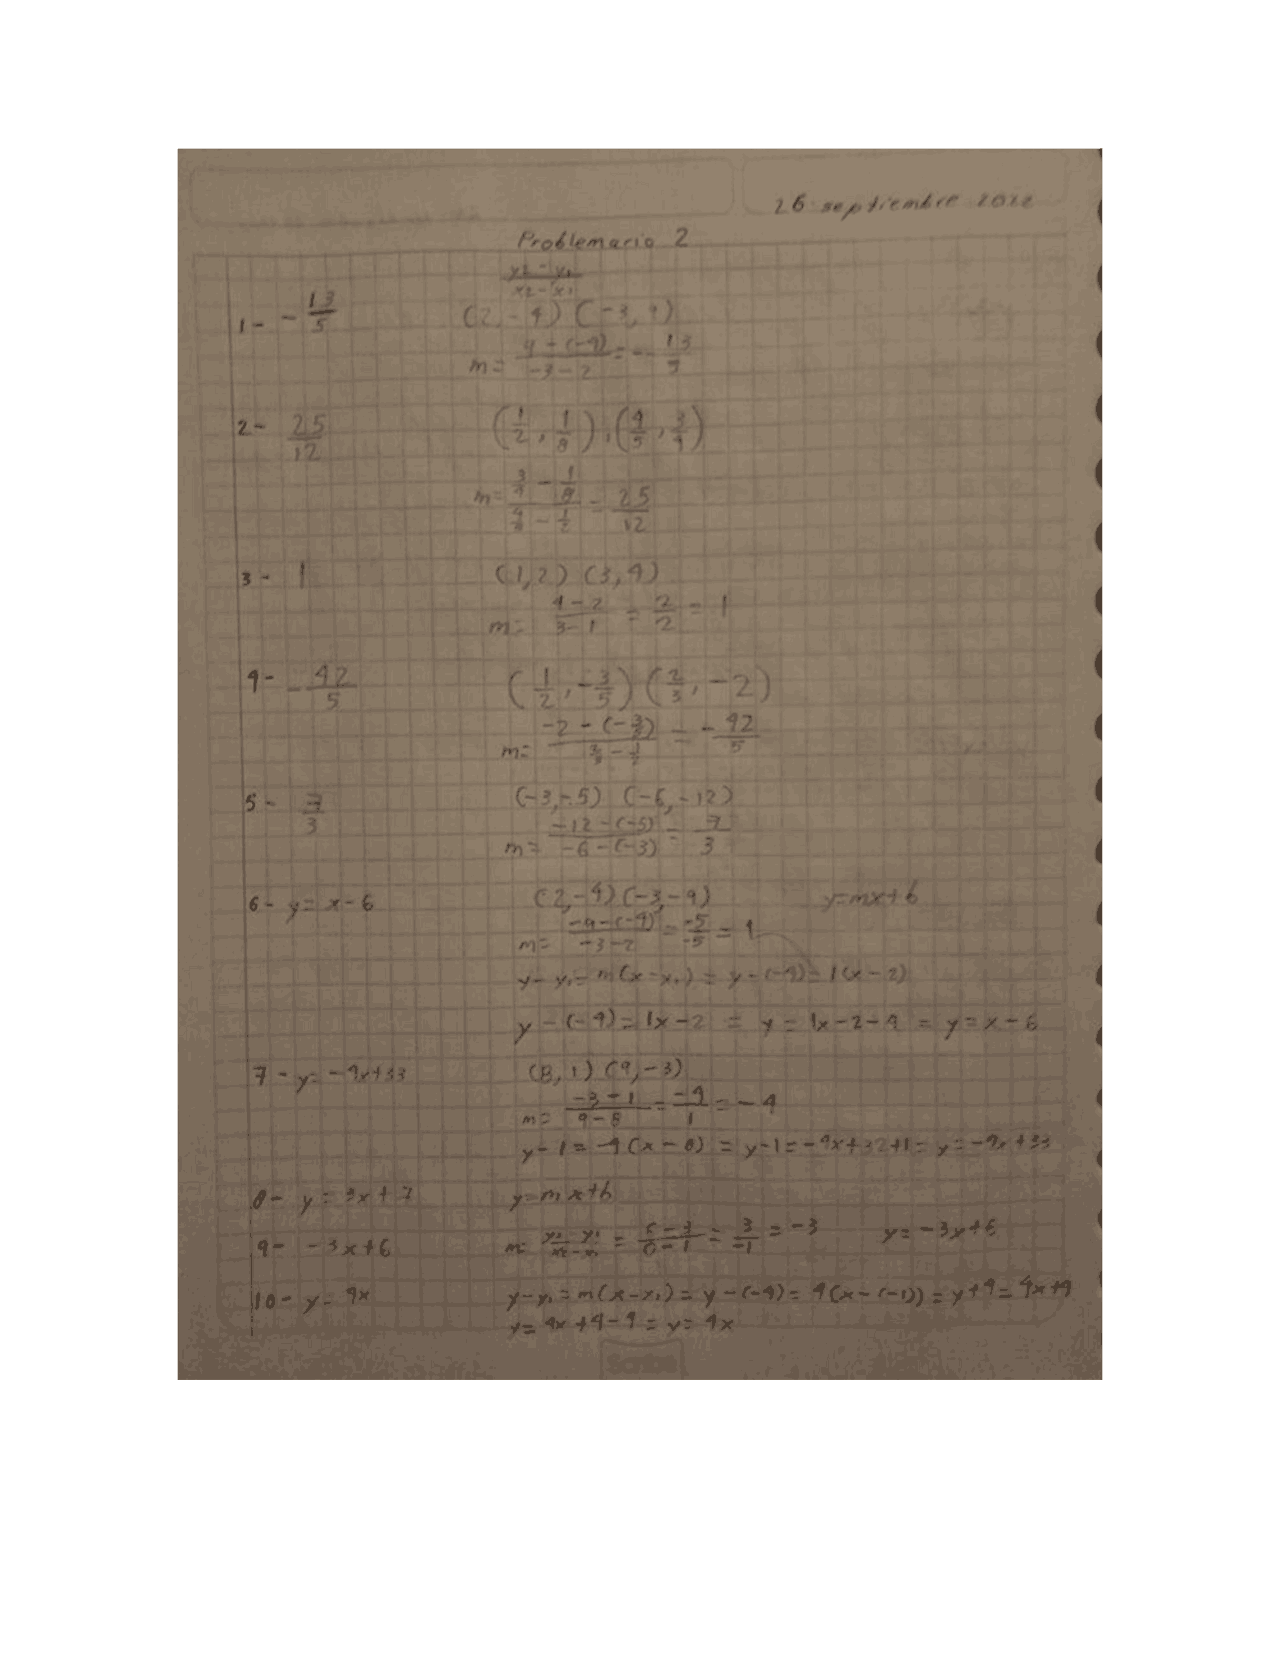 26 septiembre 2022
Problemario 2
y2 - y1 / x2 - x1
1- - 13/5 (2, -4) (-3, 9)
m = 9 - (-4) / -3 - 2 = - 13/5
2- 25/12 (1/2, 1/8), (4/5, 3/4)
m = 3/4 - 1/8 / 4/5 - 1/2 = 25/12
3- 1 (1,2) (3,4)
m = 4 - 2 / 3 - 1 = 2/2 = 1
4- - 42/5 (1/2, -3/5) (2/3, -2)
m = -2 - (-3/5) / 2/3 - 1/2 = - 42/5
5- 7/3 (-3, -5) (-6, -12)
m = -12 - (-5) / -6 - (-3) = 7/3
6- y = x - 6 (2, -4) (-3, -9) y = mx + b
m = -9 - (-4) / -3 - 2 = -5/-5 = 1
y - y1 = m(x - x1) = y - (-4) = 1(x - 2)
y - (-4) = 1x - 2 = y = 1x - 2 - 4 = y = x - 6
7- y = -4x + 33 (8, 1) (9, -3)
m = -3 - 1 / 9 - 8 = -4/1 = -4
y - 1 = -4(x - 8) = y - 1 = -4x + 32 + 1 = y = -4x + 33
8- y = 3x + 7 y = mx + b
9- -3x + 6 m = y2 - y1 / x2 - x1 = 6 - 3 / 0 - 1 = 3/-1 = -3 y = -3x + 6
10- y = 4x y - y1 = m(x - x1) = y - (-4) = 4(x - (-1)) = y + 4 = 4x + 4
y = 4x + 4 - 4 = y = 4x